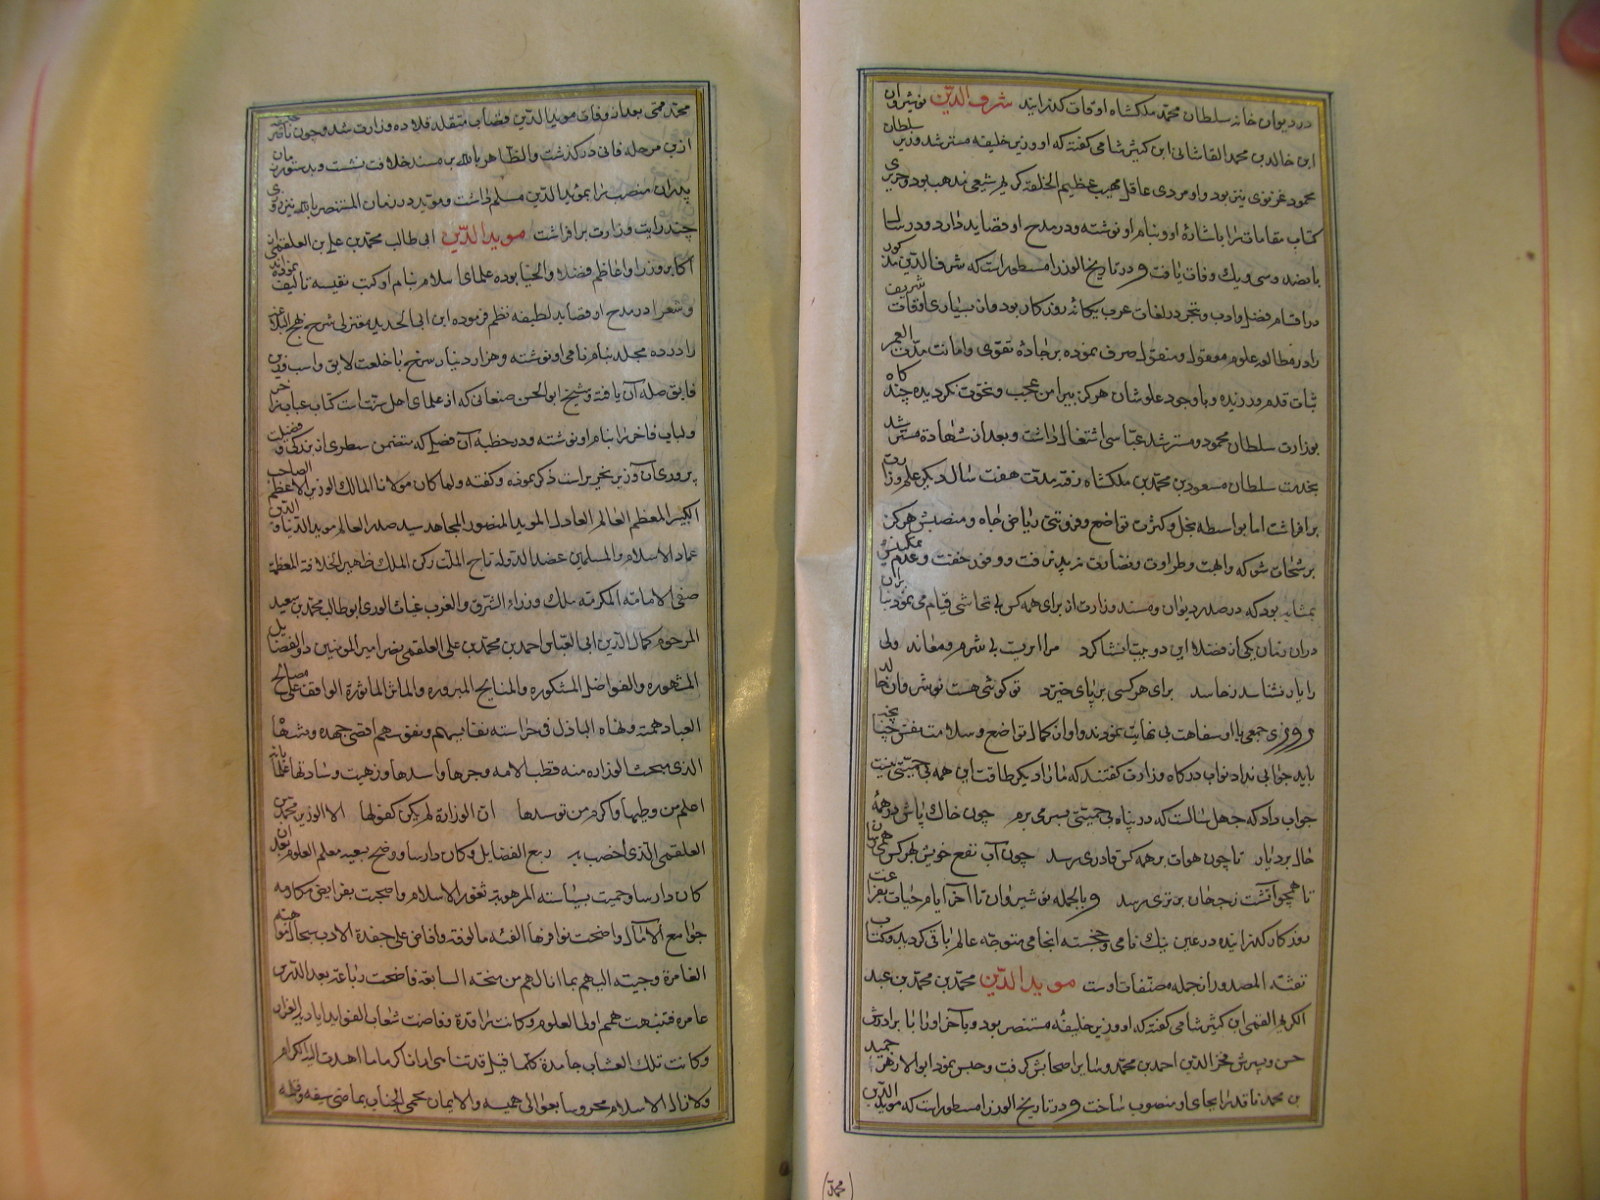 در دیوان خانه سلطان محمد ملکشاه اوقات کذرانید شرف الدین نوشیروان
ابن خالد بن محمد القاشانی ابن کثیر شامی کفته که او وزیر خلیفه مسترشد و وزیر سلطان
محمود غزنوی نیز بود و او مردی عاقل مهیب عظیم الخلقه کریم شیعی مذهب بود و حریری
کتاب مقامات را باشارهٔ او و بنام او نوشته و در مدح او قصاید دارد و در سال
پانصد و سی و یک وفات یافت و در تاریخ الوزرا مسطور است که شرف الدین مذکور
در اقسام فضل و ادب و تبحر در لغات عرب یکانهٔ روزکار بود و از بسیاری اوقات شریف
را در مطالعه علوم معقول و منقول صرف نموده بر جادهٔ تقوی و امانت مدت العمر
ثبات قدم ورزیده و با وجود علو شان هرکز پیرامن عجب و نخوت نکردیده چند کاه
بوزارت سلطان محمود و مسترشد عباسی اشتغال داشت و بعد از شهادة مسترشد
بخدمت سلطان مسعود بن محمد بن ملکشاه رفته مدت هفت سال دیکر علم وزارت
برافراشت اما بواسطه بخل و کثرت تواضع و فروتنی ریاض جاه و منصبش هرکز
برشحات شوکه و ابهت و طراوت و نضارت نپذیرفت و وفور خفت و عدم تمکینش
بمثابه بود که در صدر دیوان و مسند وزارت از برای همه کس بی تحاشی قیام می نمود بنابران
دران زمان یکی از فضلا این دو بیت انشا کرد مرا ابریت بی شرم و معاند ولی
را یار نشناسد ز حاسد برای هر کسی بر پای خیزد تو کوئی هست نوشروان خالد
روزی جمعی با او سفاهت بی نهایت نمودند و او از کمال تواضع و سلامت نفس چنانچه
باید جوابی نداد نواب درکاه وزارت کفتند که ما را دیکر طاقت این همه بی حمیتی نیست
جواب داد که چهل سالست که در پناه بی حمیتی بسر می برم چون خاک باش در همهٔ
حال بردبار تا چون هوات بر همه کس قادری رسد چون آب نفع خویش بهر کس همی رسان
تا همچو آتشت ز جهان برتری رسد و بالجمله نوشیروان تا آخر ایام حیات بفراغت
روزکار کذرانیده در عین نیک نامی و خجسته انجامی متوجه عالم باقی کردید و کتاب
نفثة المصدور از جمله مصنفات اوست مویدالدین محمد بن محمد بن عبد
الکریم القمی ابن کثیر شامی کفته که او وزیر خلیفه مستنصر بود و بآخر او را با برادرش
حسن و پسرش فخرالدین احمد بن محمد و سایر اصحابش کرفت و حبس نمود ابوالازهر احمد
بن محمد ناقد را بجای او منصوب ساخت و در تاریخ الوزرا مسطور است که مویدالدین
محمد قمی بعد از وفات مویدالدین قصاب متقلد قلاده وزارت شد و چون ناصر خلیفه
ازین مرحله فانی در کذشت و الظاهر بالله بر مسند خلافت نشست و بدستور زمان
پدران منصب را بمؤیدالدین مسلم داشت و موید در زمان المستنصر بالله نیز روزی
چند رایت وزارت برافراشت مویدالدین ابی طالب محمد بن علی بن العلقمی از
اکابر وزرا و اعاظم فضلا و اتقیا بوده علمای اسلام بنام او کتب نفیسه تالیف نموده اند
و شعرا در مدح او قصاید لطیفه نظم فرموده ابن ابی الحدید معتزلی شرح نهج البلاغه
را در ده مجلد بنام نامی او نوشته و هزار دینار سرخ با خلعت لایق و اسب و زین
فایق صله آن یافته و شیخ ابوالحسن صنعانی که از علمای اهل سنت است کتاب عباب زاخر
و لباب فاخر را بنام او نوشته و در خطبه آن فصلی که متضمن سطری از بزرکی و فضیلت
پروری آن وزیر نحریر است ذکر نموده و کفته و لما کان مولانا المالک الوزیر الاعظم الصاحب
الکبیر المعظم العالم العادل الموید المنصور المجاهد سید صدر العالم موید الدنیا و الدین
عماد الاسلام و المسلمین عضد الدوله تاج الملت رکن الملک ظهیر الخلافه المعظمة
صفی الامامه المکرمه ملک وزراء الشرق و الغرب غیاث الوری ابو طالب محمد بن سعید
المرحوم کمال الدین ابی العباس احمد بن محمد بن علی العلقمی نصیر امیر المومنین ذو الفضایل
المشهوره و الفواضل المشکوره و المنایح المبروره و المآثر الماثورة الواقف علی مصالح
العباد همته و نهاه الباذل فی حراسته نفایسهم و نفوسهم اقصی جهده و منتهاه
الذی بجحت الوزاره منه قطب الامه و حبرها و اسدها و زهیت و سادتها علما بانه
اعلم من وطیها و اکرم من توسدها ان الوزارة لم یکن کفوا لها الا الوزیر محمد بن
العلقمی الذی اخصب به ربع الفضایل و کان دارسا و وضح بعیه معلم العلوم بعد ان
کان دارسا و حمیت بسیاسته المرهوبة ثغور الاسلام و اضحت بفرایض مکارمه
جوامع الآمال و اضحت نوافرها الفته مالوفة و افاض علی حفدة الادب سجال نواهبه
الغامرة و جیته الیهم بما انالهم من منحته السابغه فاضحت رباعه بعد الدرس
عامره فتنبهت همم اولی العلوم و کانت راقدة و فاضت شعاب الفواید ایادیه الغزار
و کانت تلک الشعاب جامدة کلما قیل قد تناهی ارانا کرما ما اهدت الیه الکرام
و لا زال الاسلام محروسا بعوالی هممه و الایمان محمی الجناب بماضی سیفه و قلمه
(محمد)